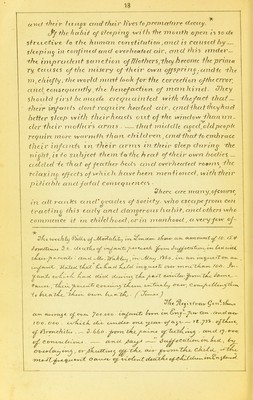 18
and their lungs and their lives to premature decay.
If the habit of sleeping with the mouth open is so de
structive to the human constitution, and is caused by
sleeping in confined and overheated air, and this under
the imprudent sanction of Mothers, they become the prima
ry causes of the misery of their own offspring; and to the
m, chiefly, the world must look for the correction of the error,
and, consequently, the benefaction of mankind. They
should first be made acquainted with the fact that
their infants dont require heated air, and that they had
better sleep with their heads out of the window than un
der their mothers arms — that middle aged, old people
require more warmth than children, and that to embrace
their infants in their arms in their sleep during the
night, is to subject them to the heat of their own bodies
added to that of feather beds and overheated rooms, the
relaxing effects of which have been mentioned, with their
pitiable and fatal consequences.
There are many, of course,
in all ranks and grades of society, who escape from con
tracting this early and dangerous habit, and others who
commence it in childhood, or in manhood, a very few of
The weekly Bills of Mortality in London show an amount of 10, 15 &
sometimes 20 deaths of infants from Suffocation, in bed with
their parents: and Mr. Wakley, in May, 1860, in an inquest on an
infant, stated that he had held inquests over more than 100 In-
fants which had died during the past winter from the same
cause, their parents covering them entirely over, compelling them
to breathe their own breath. (Times)
The Registrar Genl. shows
an average of over 700,000 infants born in England per an. and over
100,000 which die under one year of age — 12,738 of these
of Bronchitis — 3,660 from the pains of teething, and 19,000
of convulsions — and says — "Suffocation in bed, by
overlaying, or shutting off the air from the child, is the
most frequent cause of violent deaths of children in England